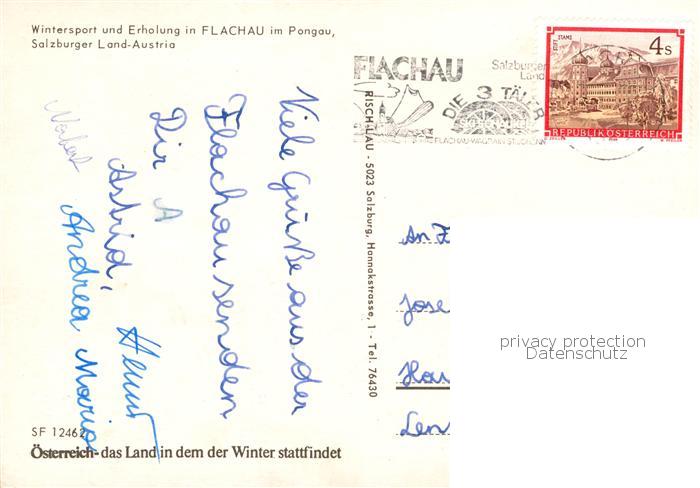 Wintersport und Erholung in FLACHAU im Pongau,
Salzburger Land-Austria
FLACHAU
Salzburger
Land
DIE 3 TÄLER
4 S
STIFT STAMS
REPUBLIK ÖSTERREICH
RISCH-LAU - 5023 Salzburg, Hannakstrasse, 1 - Tel. 76430
Viele Grüße aus der
Flachau senden
Dir
Astrid,
Andrea Mario
An
Jose
Hau
Len
privacy protection
Datenschutz
SF 12462
Österreich-das Land in dem der Winter stattfindet